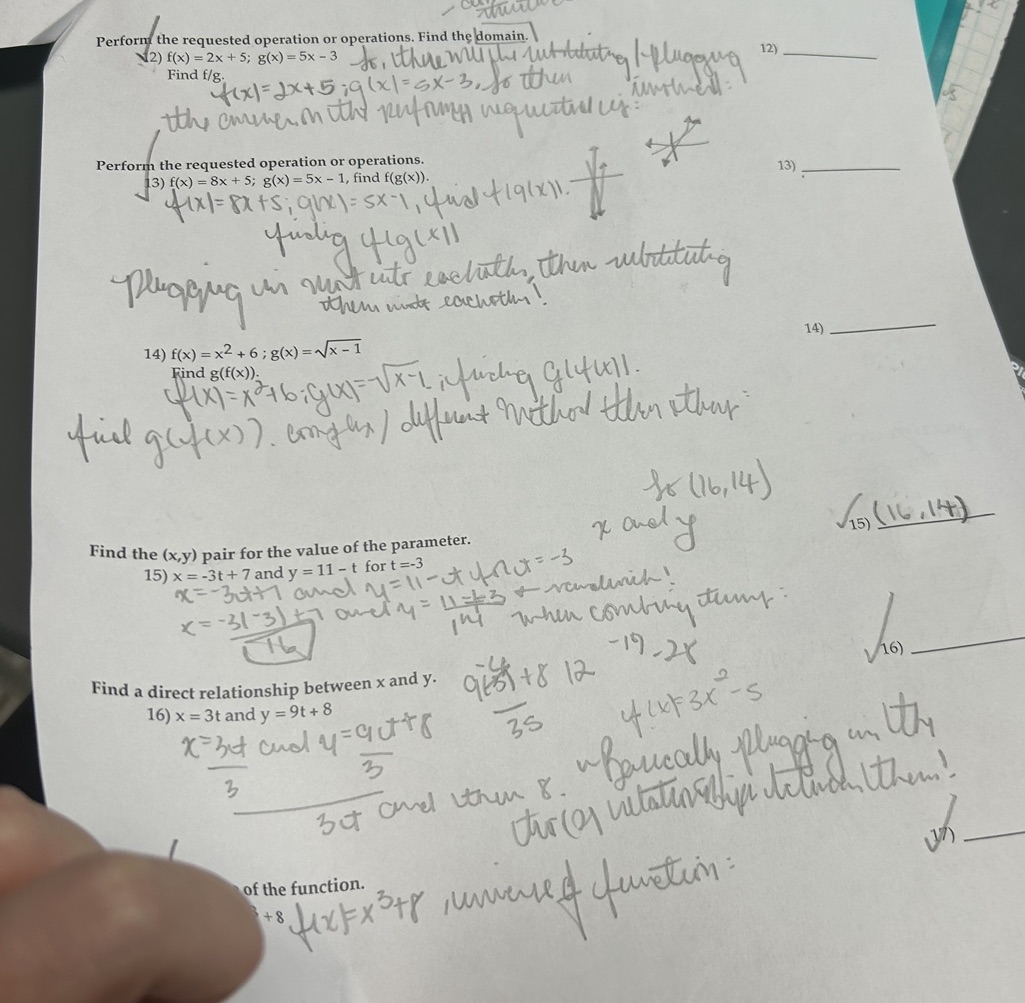 Perform the requested operation or operations. Find the domain.
12) f(x) = 2x + 5; g(x) = 5x - 3 So, there will be substituting / plugging
12) ________
Find f/g.
f(x)=2x+5; g(x)=5x-3. So then involved:
the on the requested is:
Perform the requested operation or operations.
13) ________
13) f(x) = 8x + 5; g(x) = 5x - 1, find f(g(x)).
f(x)=8x+5; g(x)=5x-1, find f(g(x)).
finding f(g(x))
plugging in into eachother, then substituting
them into eachother!
14) ________
14) f(x) = x² + 6 ; g(x) = √x - 1
Find g(f(x)).
f(x)=x²+6; g(x)=√x-1; finding g(f(x)).
find g(f(x)). complex / different method then other:
for (16,14)
x and y
15) (16,14)
Find the (x,y) pair for the value of the parameter.
15) x = -3t + 7 and y = 11 - t for t =-3
x=-3t+7 and y=11-t for t=-3
x=-3(-3)+7 and y= 11-+3
16
14
when combing
16) ________
Find a direct relationship between x and y.
+8 12 -19 -28
35
f(x)=3x²-5
16) x = 3t and y = 9t + 8
x=3t and y=9t+8
3 3
3t and then 8.
Basically plugging in the
relationship between them!
17) ________
of the function.
+8 f(x)=x³+8, inverse of function: